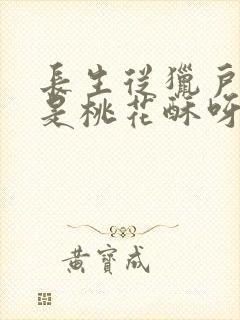 長生從獵戶
是桃花酥呀
黃寶成